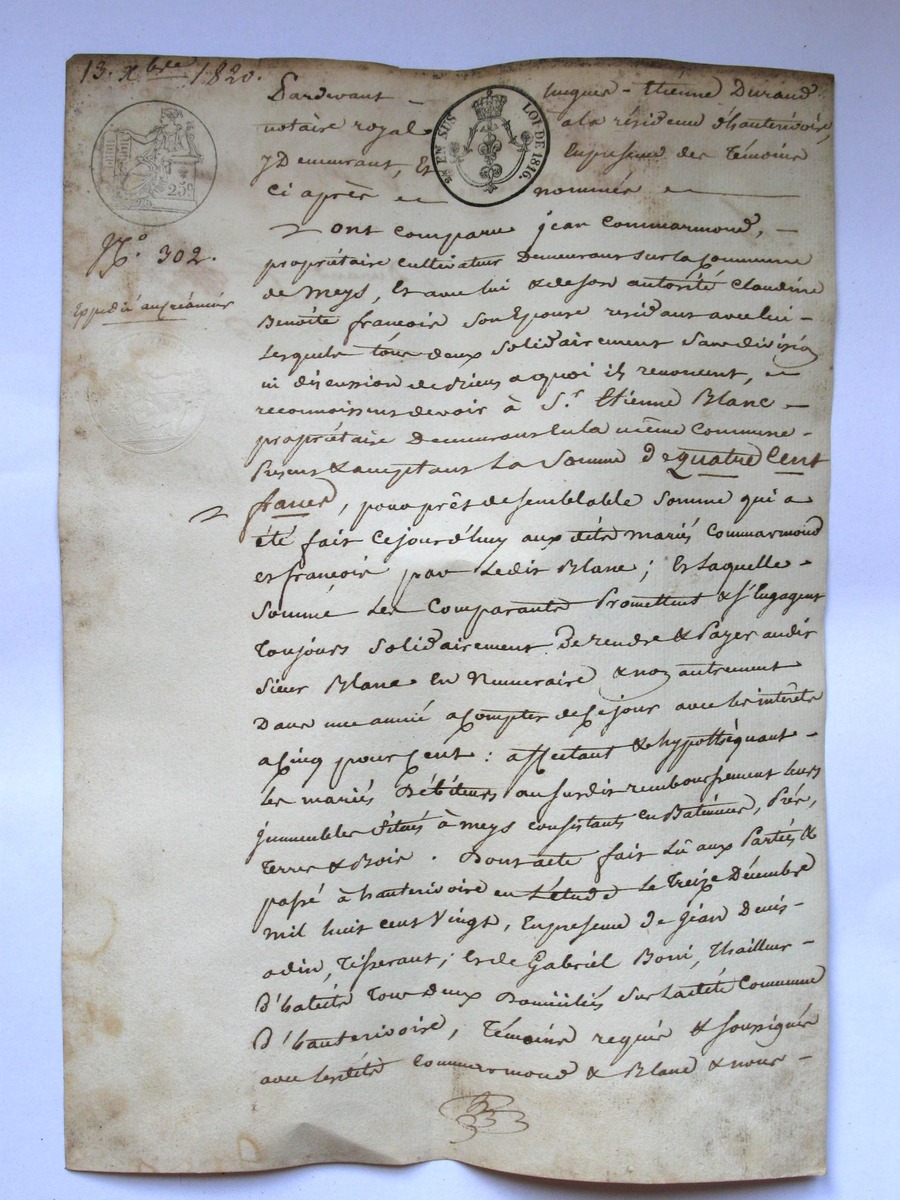 13. Xbre 1820.
Pardevant hugues - Etienne Durand
EN SUS LOI DE 1816.
notaire royal a la résidence d'hauterivoire,
y Demeurant, Et En presence des Témoins
25c
Ci après nommés
No. 302.
ont comparu jean Commarmond,
propriétaire cultivateur Demeurant sur la Commune
de Meys, Et avec lui & de son autorité Claudine
Benoite françois son Epouse residant avec lui
Lesquels tous deux Solidairement Sans division
ni discussion de biens a quoi ils renoncent,
reconnoissent devoir à Sr. Etienne Blanc
propriétaire Demeurant En la même Commune
Present & acceptant La Somme De quatre Cent
francs, pour prêt de semblable Somme qui a
été fait Cejourd'huy aux dits mariés Commarmond
et françois par Ledit Blanc; Et Laquelle
Somme Les Comparants Promettent & s'Engagent
Toujours Solidairement De rendre & Payer audit
Sieur Blanc En Numeraire & non autrement
Dans une année a Compter de Ce jour avec les interêts
a Cinq pour Cent : affectant & hypothéquant
les mariés Débiteurs au susdit remboursement leurs
jmmeubles Situés à Meys consistants en Batiments, Prés,
Terres & Bois. Dont acte fait Lû aux Parties &
passé à hauterivoire en L'étude Le Treize Décembre
mil huit cent Vingt, En presence de jean Denis
odin, Tisserant; et de Gabriel Boni, Thailleur
D'habits Tous Deux Domiciliés Sur Ladite Commune
D'hauterivoire, Témoins requis & soussignés
avec Lesdits Commarmond & Blanc & nous